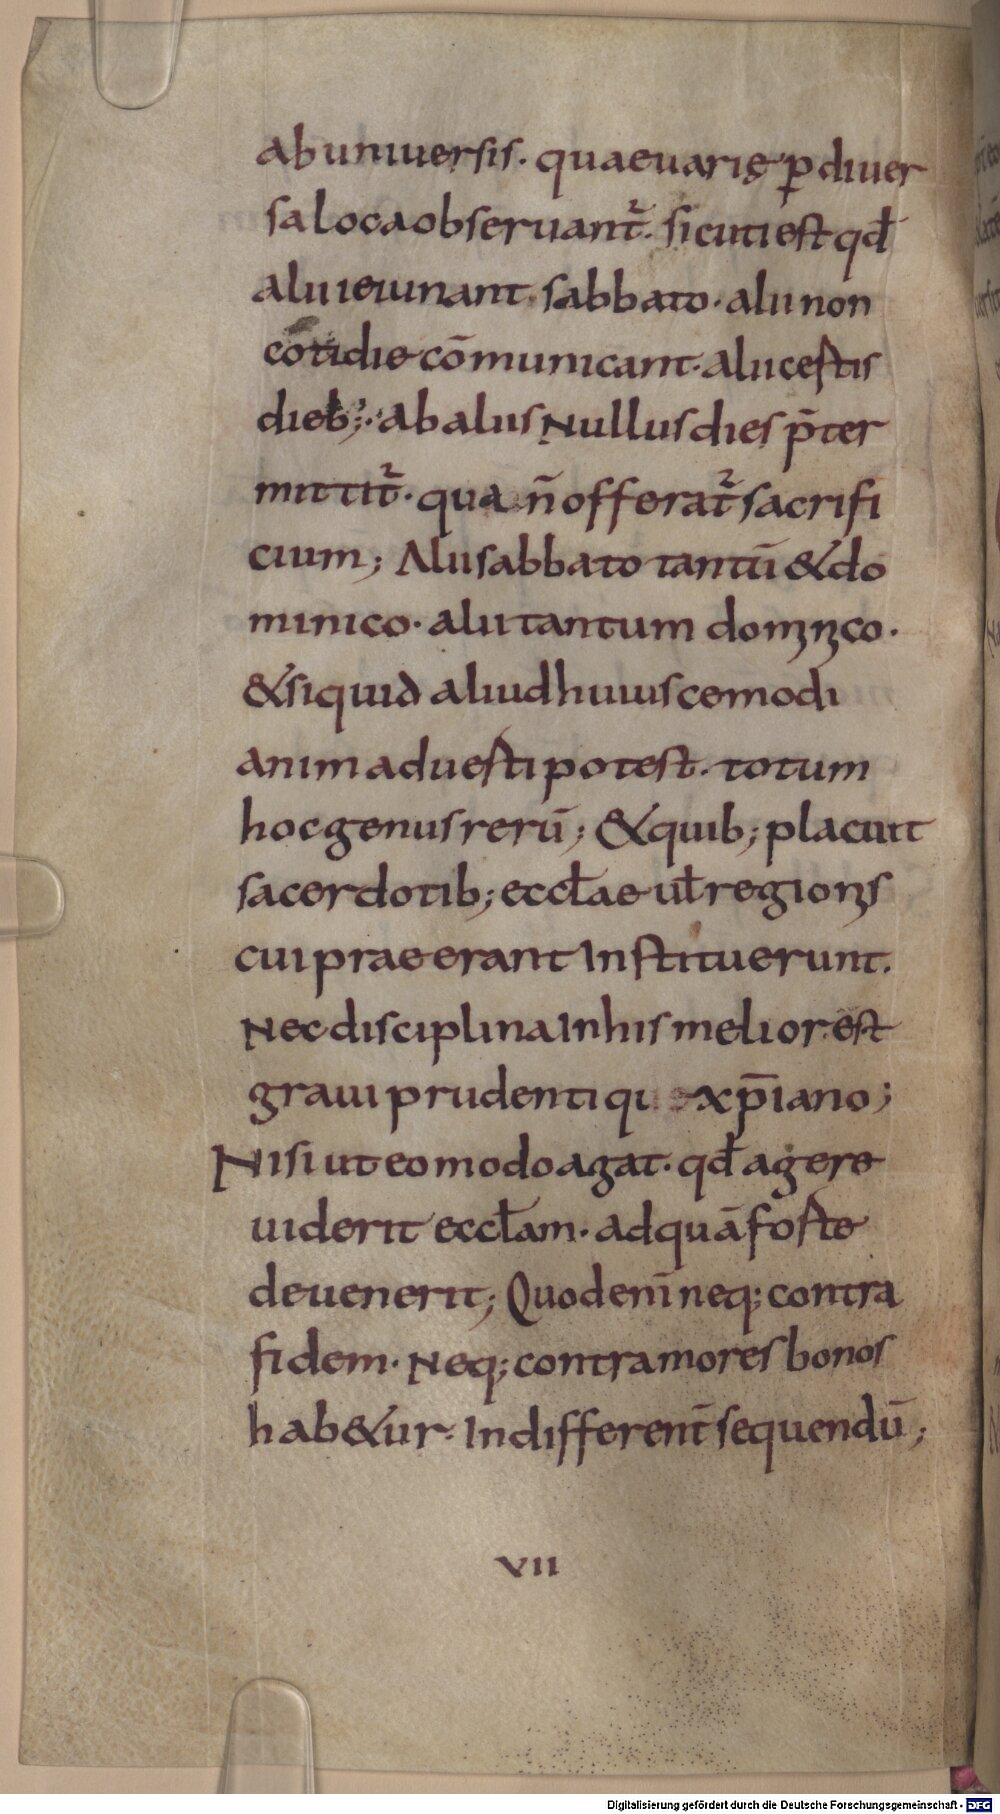 ab uniuersis. quae uarię p̲ diuer
sa loca obseruant᷑. sicuti est qd̄
alii ieiunant sabbato. alii non
cotidie cōmunicant. alii certis
dieb;. Ab aliis Nullus dies p̄ter
mittit᷑. qua n̄ offerat᷑ sacrifi
cium; Alii sabbato tantū & do
minico. alii tantum dominico.
& siquid aliud huiuscemodi
animaduerti potest. totum
hoc genus rerū; & quib; placuit
sacerdotib; eccłae uł regionis
cui praeerant Instituerunt.
Nec disciplina In his melior est
graui prudentiq; xp̄iano;
Nisi ut eo modo agat. qd̄ agere
uiderit eccłam. ad quā forte
deuenerit; Quod enī neq; contra
fidem. Neq; contra mores bonos
hab&ur. Indifferent̄ sequendū;
VII
Digitalisierung gefördert durch die Deutsche Forschungsgemeinschaft - DFG